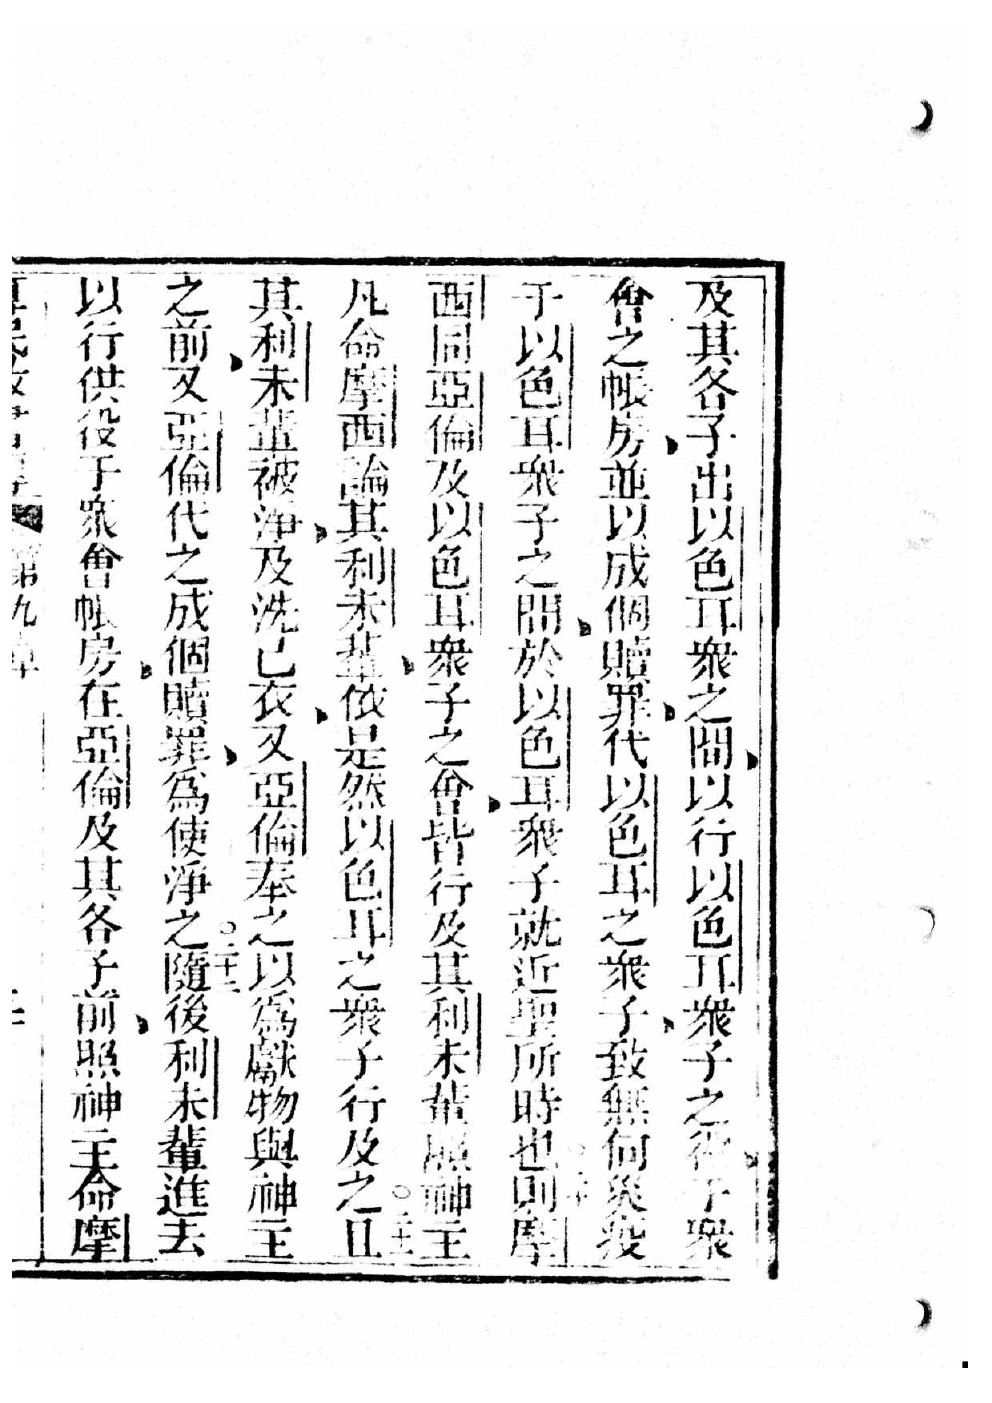 及其各子出以色耳衆之間以行以色耳衆子之役于衆
會之帳房並以成個贖罪代以色耳之衆子致無何災疫
于以色耳衆子之間於以色耳衆子就近聖所時也則摩
西同亞倫及以色耳衆子之會皆行及其利未輩照神主
凡命摩西論其利未輩依是然以色耳之衆子行及之○二十一且
其利未輩被淨及洗己衣又亞倫奉之以爲獻物與神主
之前又亞倫代之成個贖罪爲使淨之○二十二隨後利未輩進去
以行供役于衆會帳房在亞倫及其各子前照神主命摩
第九章